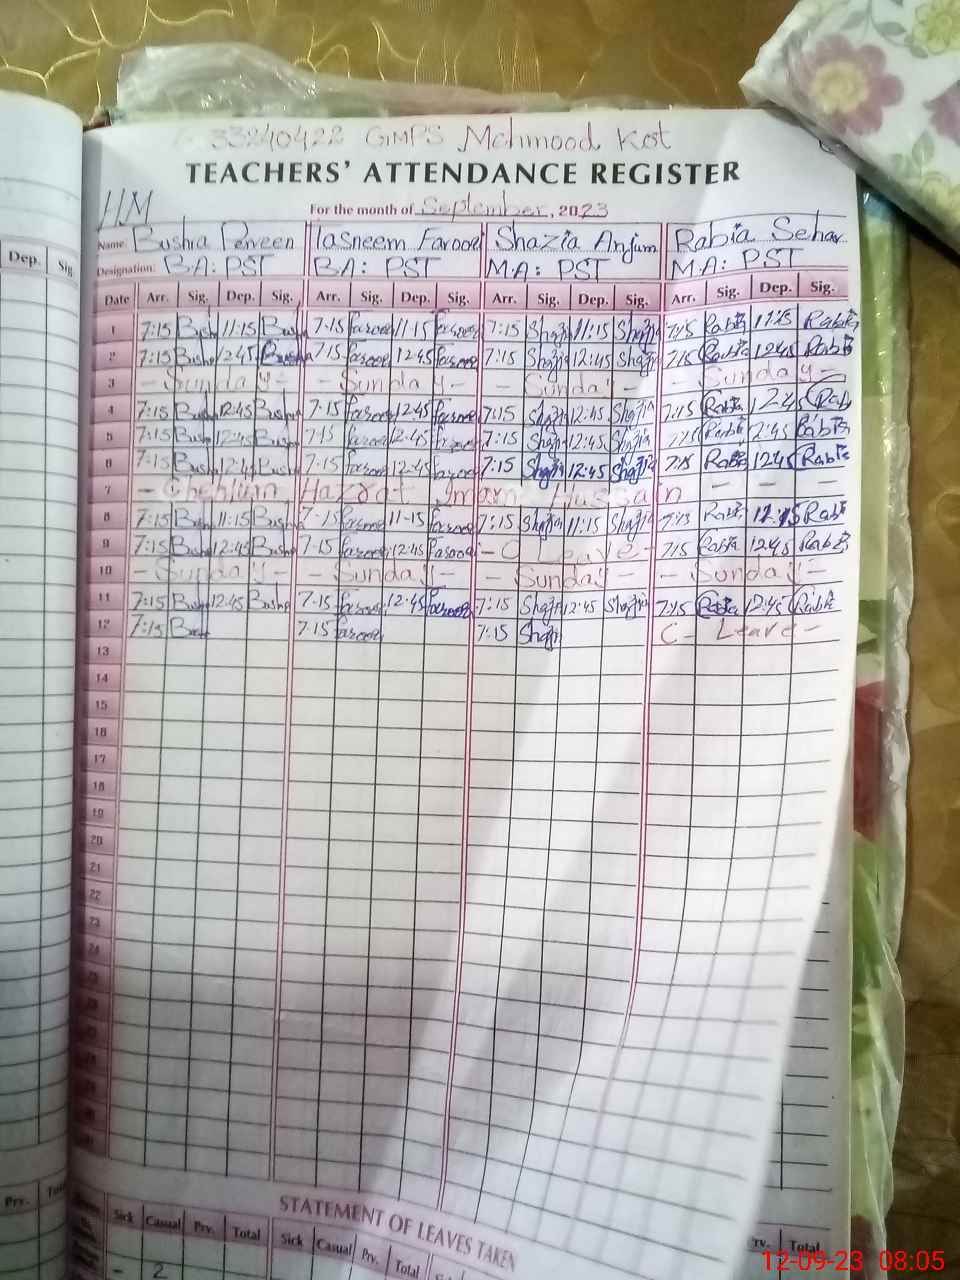 33240422 GMPS Mehmood Kot
TEACHERS' ATTENDANCE REGISTER
HM
For the month of September, 2023
Name: Bushra Perveen Tasneem Farooq Shazia Anjum Rabia Sehar
Designation: B.A: PST B.A: PST M.A: PST M.A: PST
Dep. Sig.
Date Arr. Sig. Dep. Sig. Arr. Sig. Dep. Sig. Arr. Sig. Dep. Sig. Arr. Sig. Dep. Sig.
1 7:15 Bush 11:15 Bush 7-15 farooq 11-15 farooq 7:15 Shazia 11:15 Shazia 7:15 Rabia 11:15 Rabia
2 7:15 Bush 12:45 Bushra 7-15 farooq 12:45 farooq 7:15 Shazia 12:45 Shazia 7:15 Rabia 12:45 Rabia
3 - Sunday - - Sunday - - Sunday - - Sunday -
4 7:15 Bush 12:45 Bush 7-15 farooq 12:45 farooq 7:15 Shazia 12:45 Shazia 7:15 Rabia 12:45 Rabia
5 7:15 Bush 12:45 Bush 7-15 farooq 12-45 farooq 7:15 Shazia 12:45 Shazia 7:15 Rabia 12:45 Rabia
6 7:15 Bush 12:45 Bush 7-15 farooq 12:45 farooq 7:15 Shazia 12:45 Shazia 7:15 Rabia 12:45 Rabia
7 - Chehlum Hazrat Imam Hussain - - -
8 7:15 Bush 11:15 Bush 7-15 farooq 11-15 farooq 7:15 Shazia 11:15 Shazia 7:15 Rabia 11:15 Rabia
9 7:15 Bush 12:45 Bush 7-15 farooq 12:45 farooq - C Leave - 7:15 Rabia 12:45 Rabia
10 - Sunday - - Sunday - - Sunday - - Sunday -
11 7:15 Bush 12:45 Bush 7-15 farooq 12:45 farooq 7:15 Shazia 12:45 Shazia 7:15 Rabia 12:45 Rabia
12 7:15 Bush 7-15 farooq 7:15 Shazia C - Leave -
13
14
15
16
17
18
19
20
21
22
23
24
STATEMENT OF LEAVES TAKEN
Prv. Total
Sick Casual Prv. Total Sick Casual Prv. Total Total
- 2
12-09-23 08:05